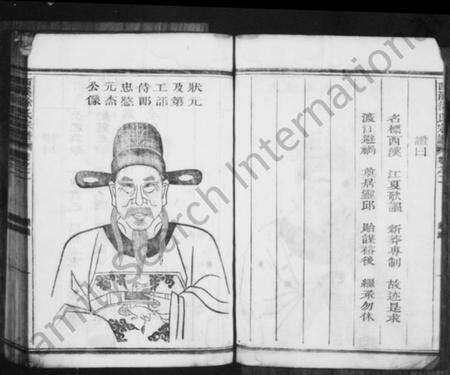 狀元
及第
工部
侍郎
忠愍
元杰
公像
讚曰
名標西漢 江夏歌謳 新莽專制 故迹是求
避禍 奠居靈邱 貽謀裕後 繼承勿休
FamilySearch International